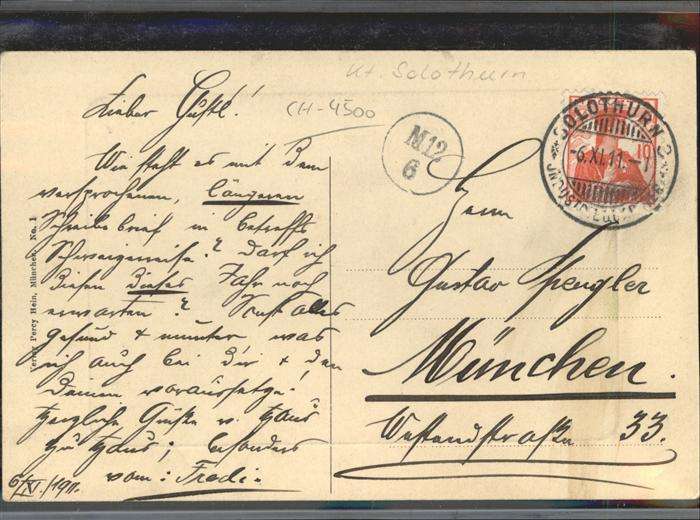 Kt. Solothurn
CH-4500
Lieber Gustl!
Wie steht es mit dem
versprochenen, längeren
Schreibebrief in betreffs
Schweizerreise? Darf ich
diesen dieses Jahr noch
erwarten? Sonst alles
gesund & munter was
ich auch bei Dir & den
Deinen voraussetze!
Herzliche Grüße v. Haus
zu Haus; besonders
vom: Fredi.
6/XI./1911.
Verlag Percy Hein, München. No. 1
M12.
6
SOLOTHURN 2
-6.XI.11.-
10
Herrn
Gustav Spengler
München.
Westendstraße 33.